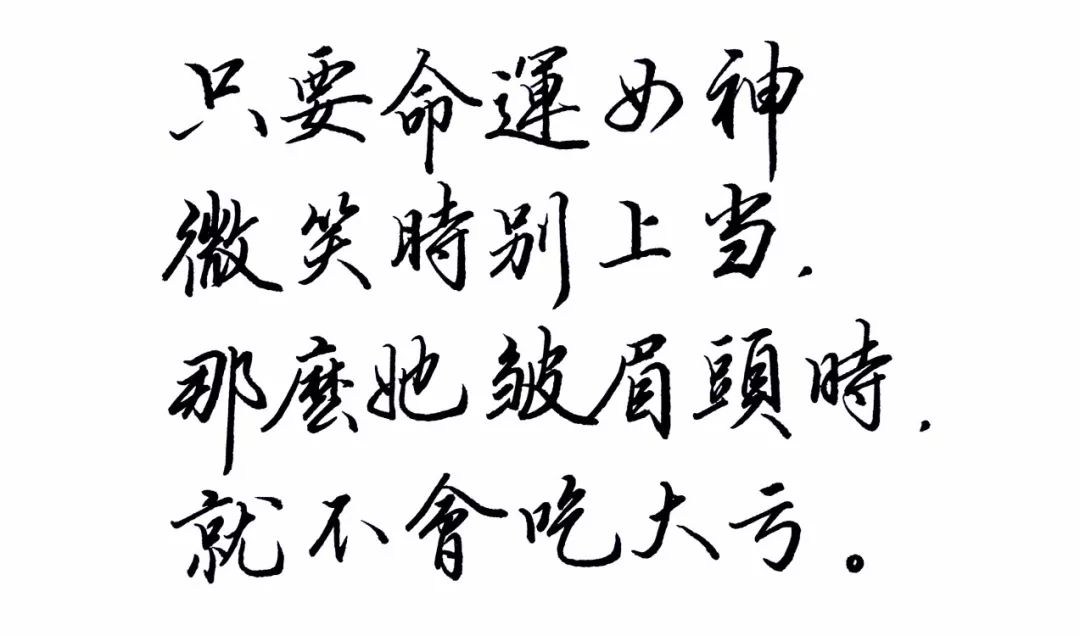 只要命運女神
微笑時别上当，
那麼她皱眉頭時，
就不會吃大亏。